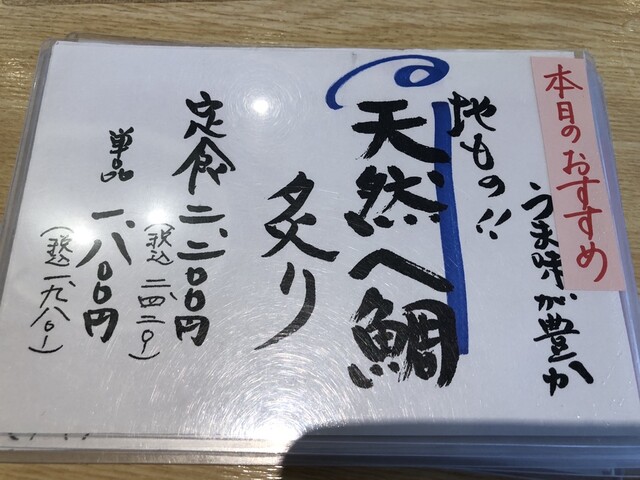 本日のおすすめ
うま味が豊か
地もの!!
天然へ鯛
炙り
定食 二、二〇〇円
(税込 二、四二〇-)
単品 一、八〇〇円
(税込 一、九八〇-)